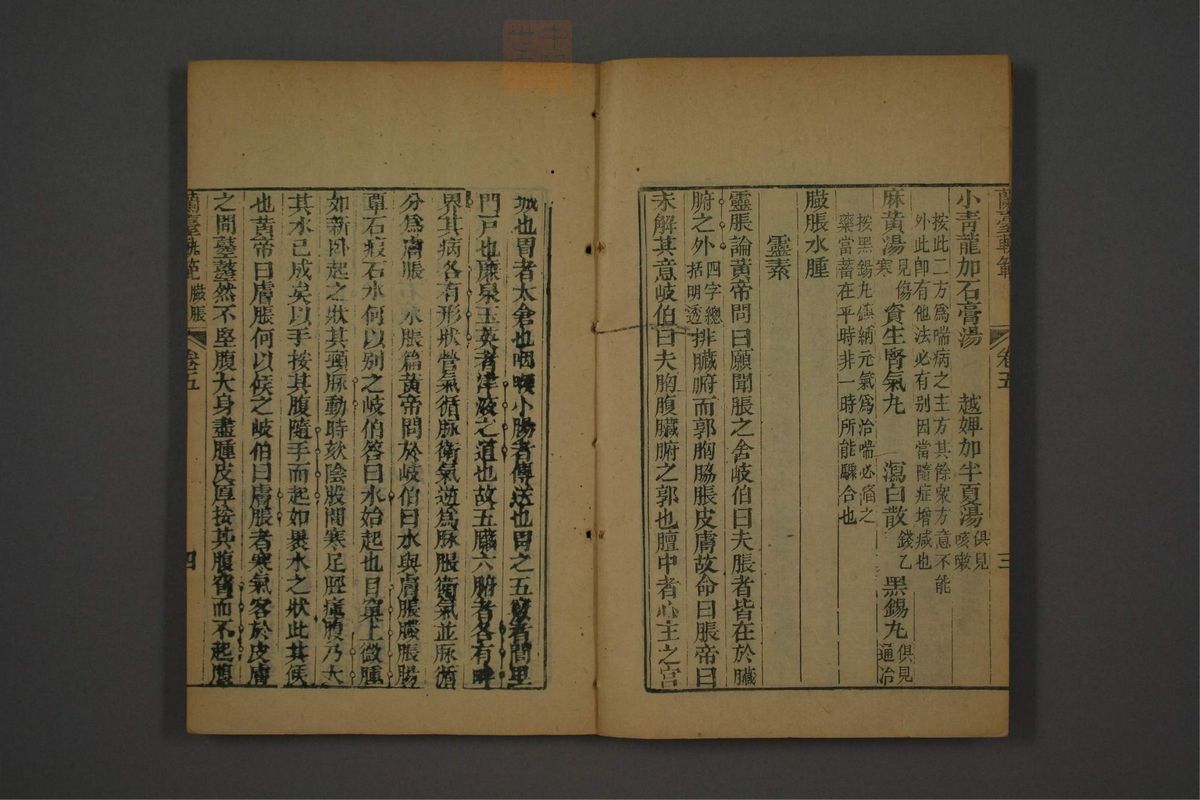 蘭臺軌範 卷五 三
小青龍加石膏湯 越婢加半夏湯 俱見咳嗽
按此二方爲喘病之主方其餘衆方意不能
外此卽有他法必有别因當隨症增減也
麻黄湯 見傷寒 資生腎氣丸 瀉白散 錢乙 黑錫丸 俱見通治
按黑錫丸鎮納元氣爲治喘必備之
藥當蓄在平時非一時所能驟合也
臌脹水腫
靈素
靈脹論黃帝問曰願聞脹之舍岐伯曰夫脹者皆在於臟
腑之外 四字總括明透 排臟腑而郭胸脇脹皮膚故命曰脹帝曰
未解其意岐伯曰夫胸腹臟腑之郭也膻中者心主之宫
城也胃者太倉也咽喉小腸者傳送也胃之五竅者閭里
門戸也廉泉玉英者津液之道也故五臟六腑者各有畔
界其病各有形狀營氣循脉衛氣逆爲脉脹衛氣並脉循
分爲膚脹 水脹篇黃帝問於岐伯曰水與膚脹臌脹腸
覃石瘕石水何以别之岐伯答曰水始起也目窠上微腫
如新卧起之狀其頸脉動時欬陰股間寒足脛瘇腹乃大
其水已成矣以手按其腹隨手而起如裹水之狀此其候
也黃帝曰膚脹何以候之岐伯曰膚脹者寒氣客於皮膚
之間𪔣𪔣然不堅腹大身盡腫皮厚按其腹窅而不起腹
蘭臺軌範 臌脹 卷五 四